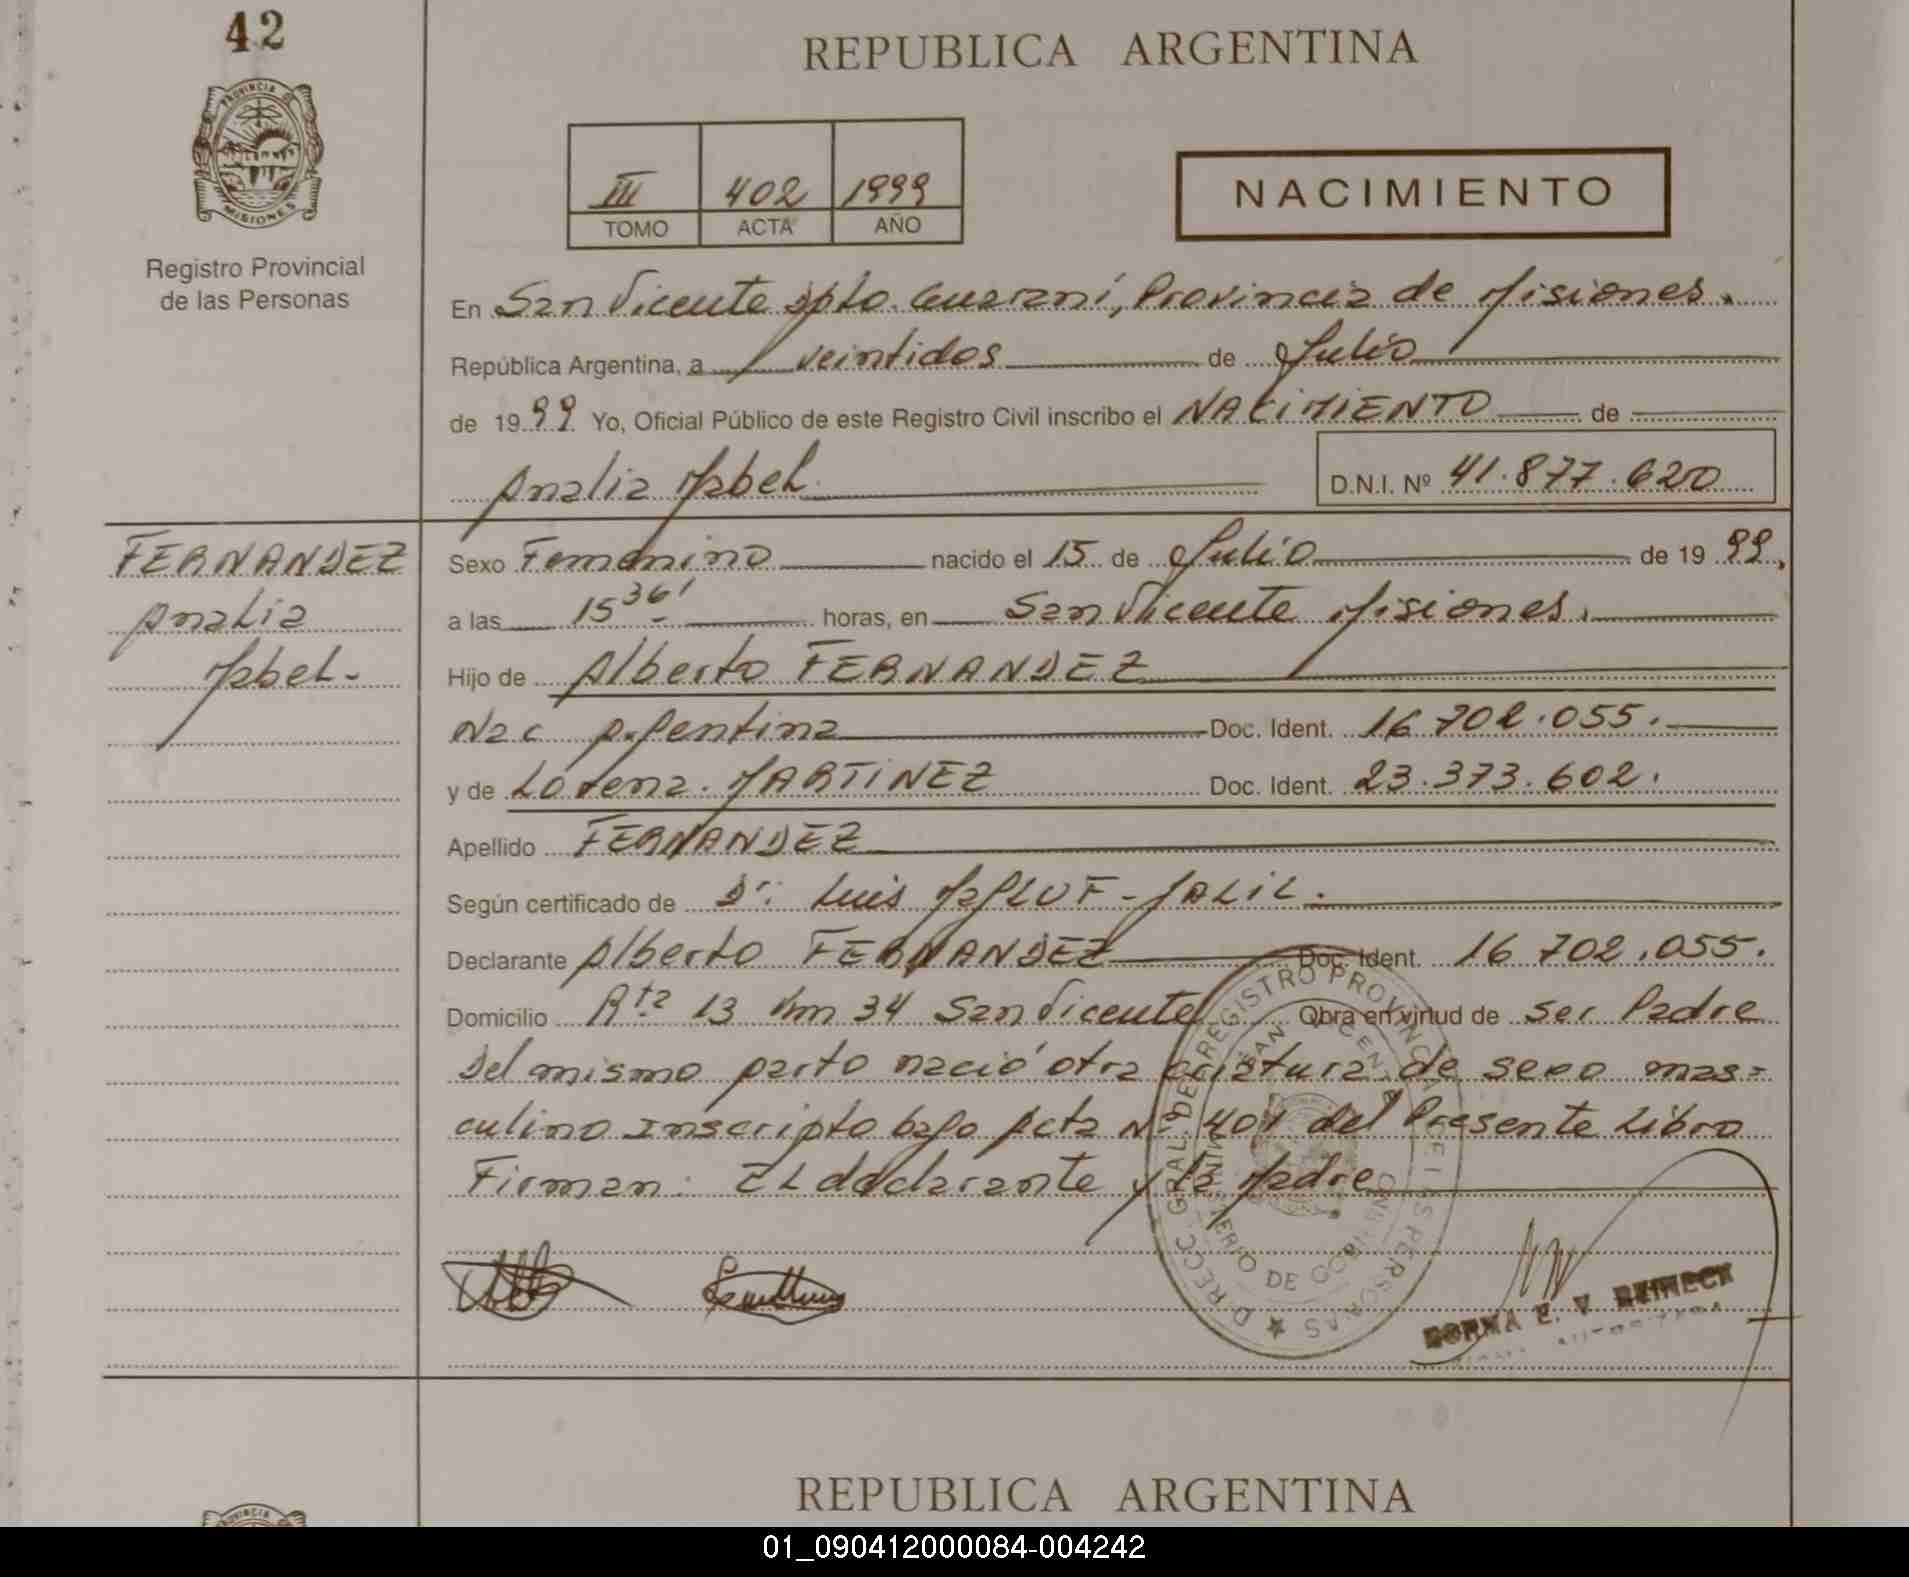 42
REPUBLICA ARGENTINA
PROVINCIA DE
MISIONES
Registro Provincial
de las Personas
III 402 1999
TOMO ACTA AÑO
NACIMIENTO
En San Vicente Dpto. Guaraní, Provincia de Misiones.
República Argentina, a veintidos de Julio
de 1999 Yo, Oficial Público de este Registro Civil inscribo el NACIMIENTO de
Analia Mabel
D.N.I. Nº 41.877.620
FERNANDEZ
Analia
Mabel-
Sexo Femenino nacido el 15 de Julio de 1999,
a las 15 36' horas, en San Vicente Misiones.
Hijo de Alberto FERNANDEZ
Nac Argentina Doc. Ident. 16 702.055.
y de Lorena MARTINEZ Doc. Ident. 23.373.602.
Apellido FERNANDEZ
Según certificado de Dr: Luis JALIL.
Declarante Alberto FERNANDEZ Doc. Ident. 16 702.055.
Domicilio Rta 13 Km 34 San Vicente Obra en virtud de ser Padre
Del mismo parto nació otra criatura de sexo mas=
culino Inscripto bajo Acta Nº 401 del Presente Libro
Firman: El declarante y la Madre
DIRECC. GRAL. DE REGISTRO PROVINCIAL DE LAS PERSONAS
SAN VICENTE
MINISTERIO DE GOBIERNO
E. V. REINECK
REPUBLICA ARGENTINA
PROVINCIA
01_090412000084-004242